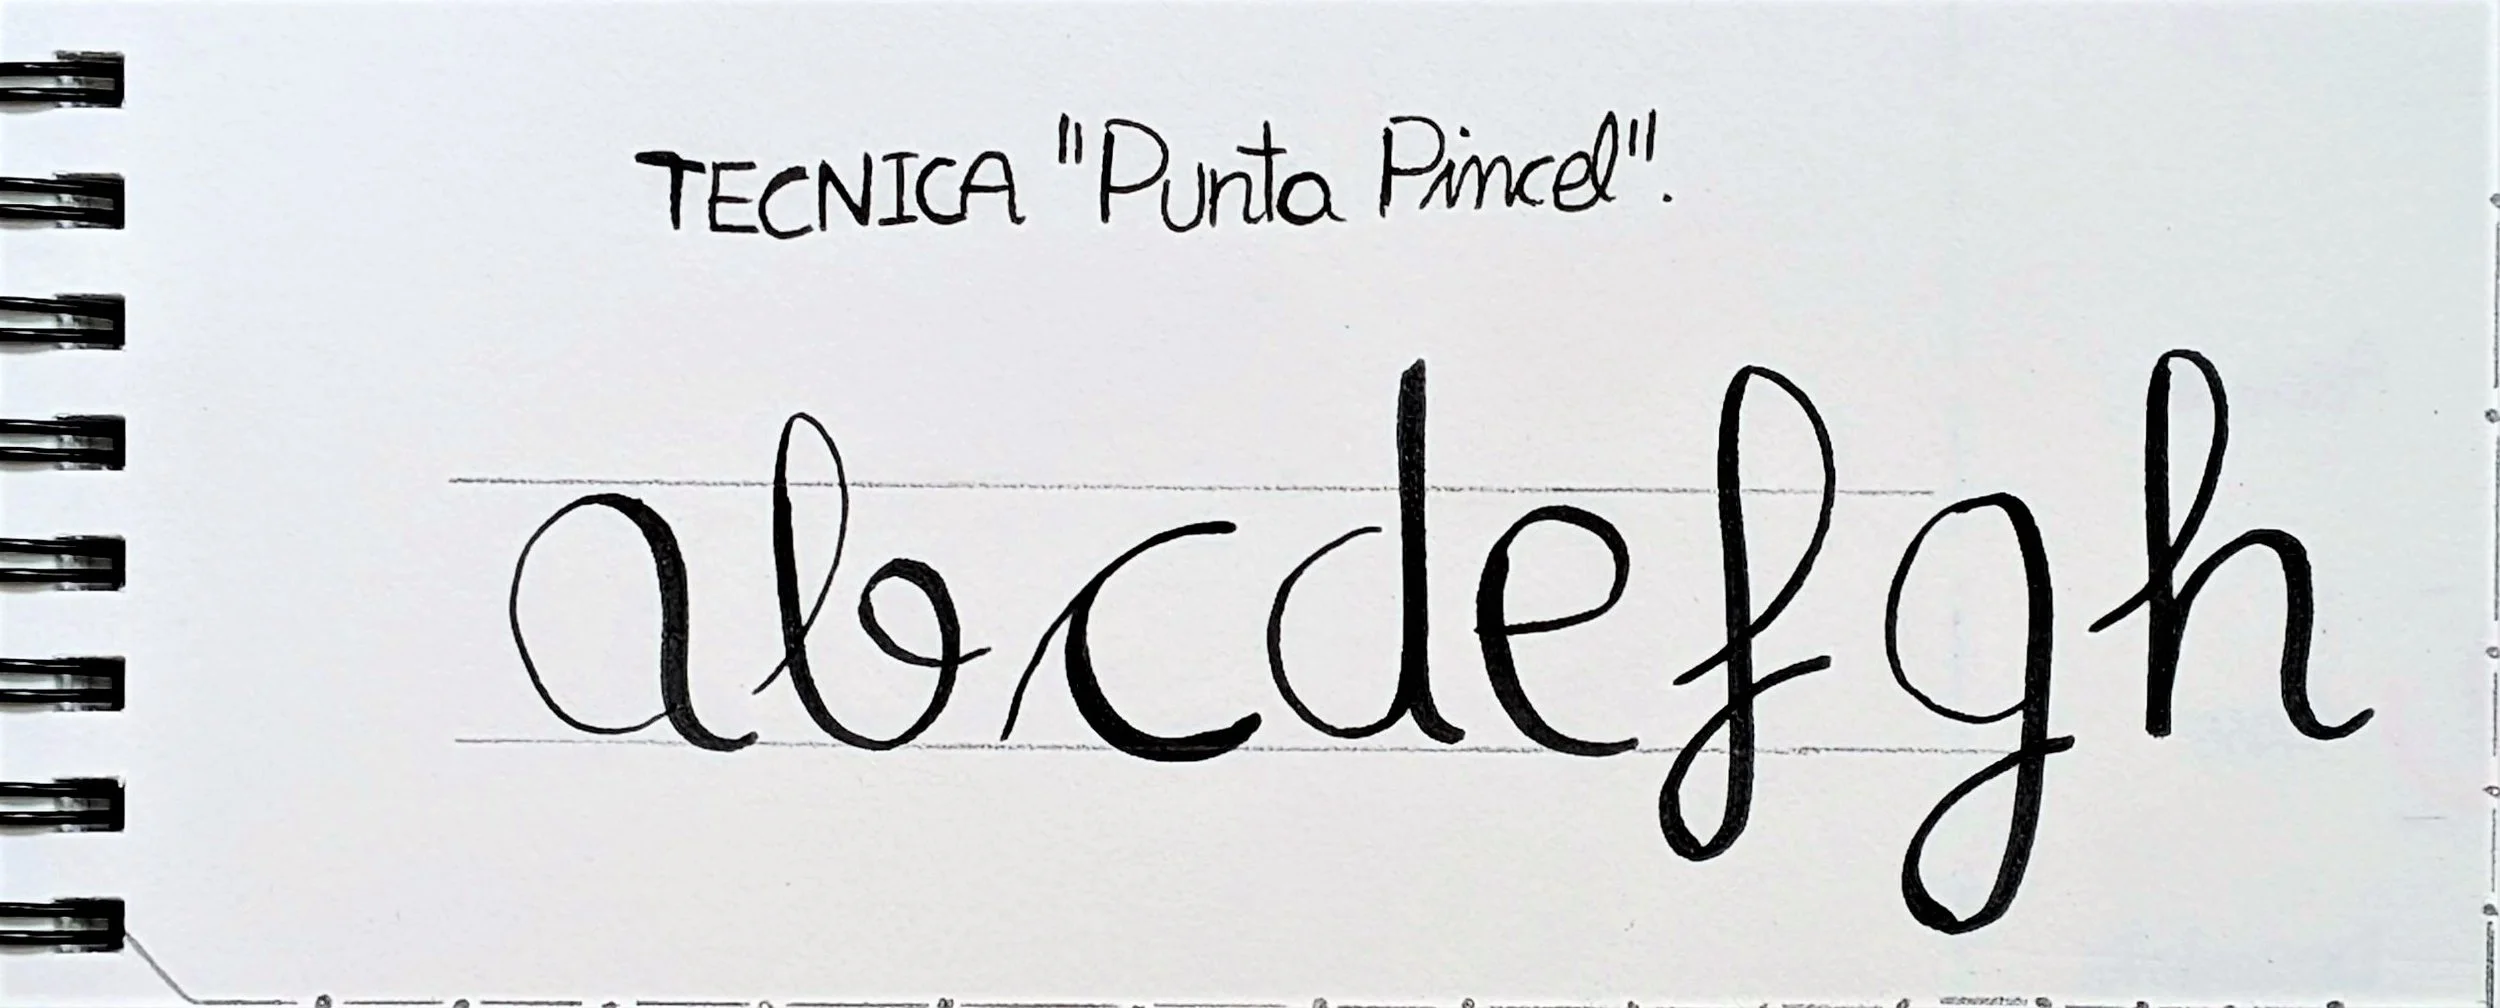 TECNICA "Punta Pincel".
a b c d e f g h